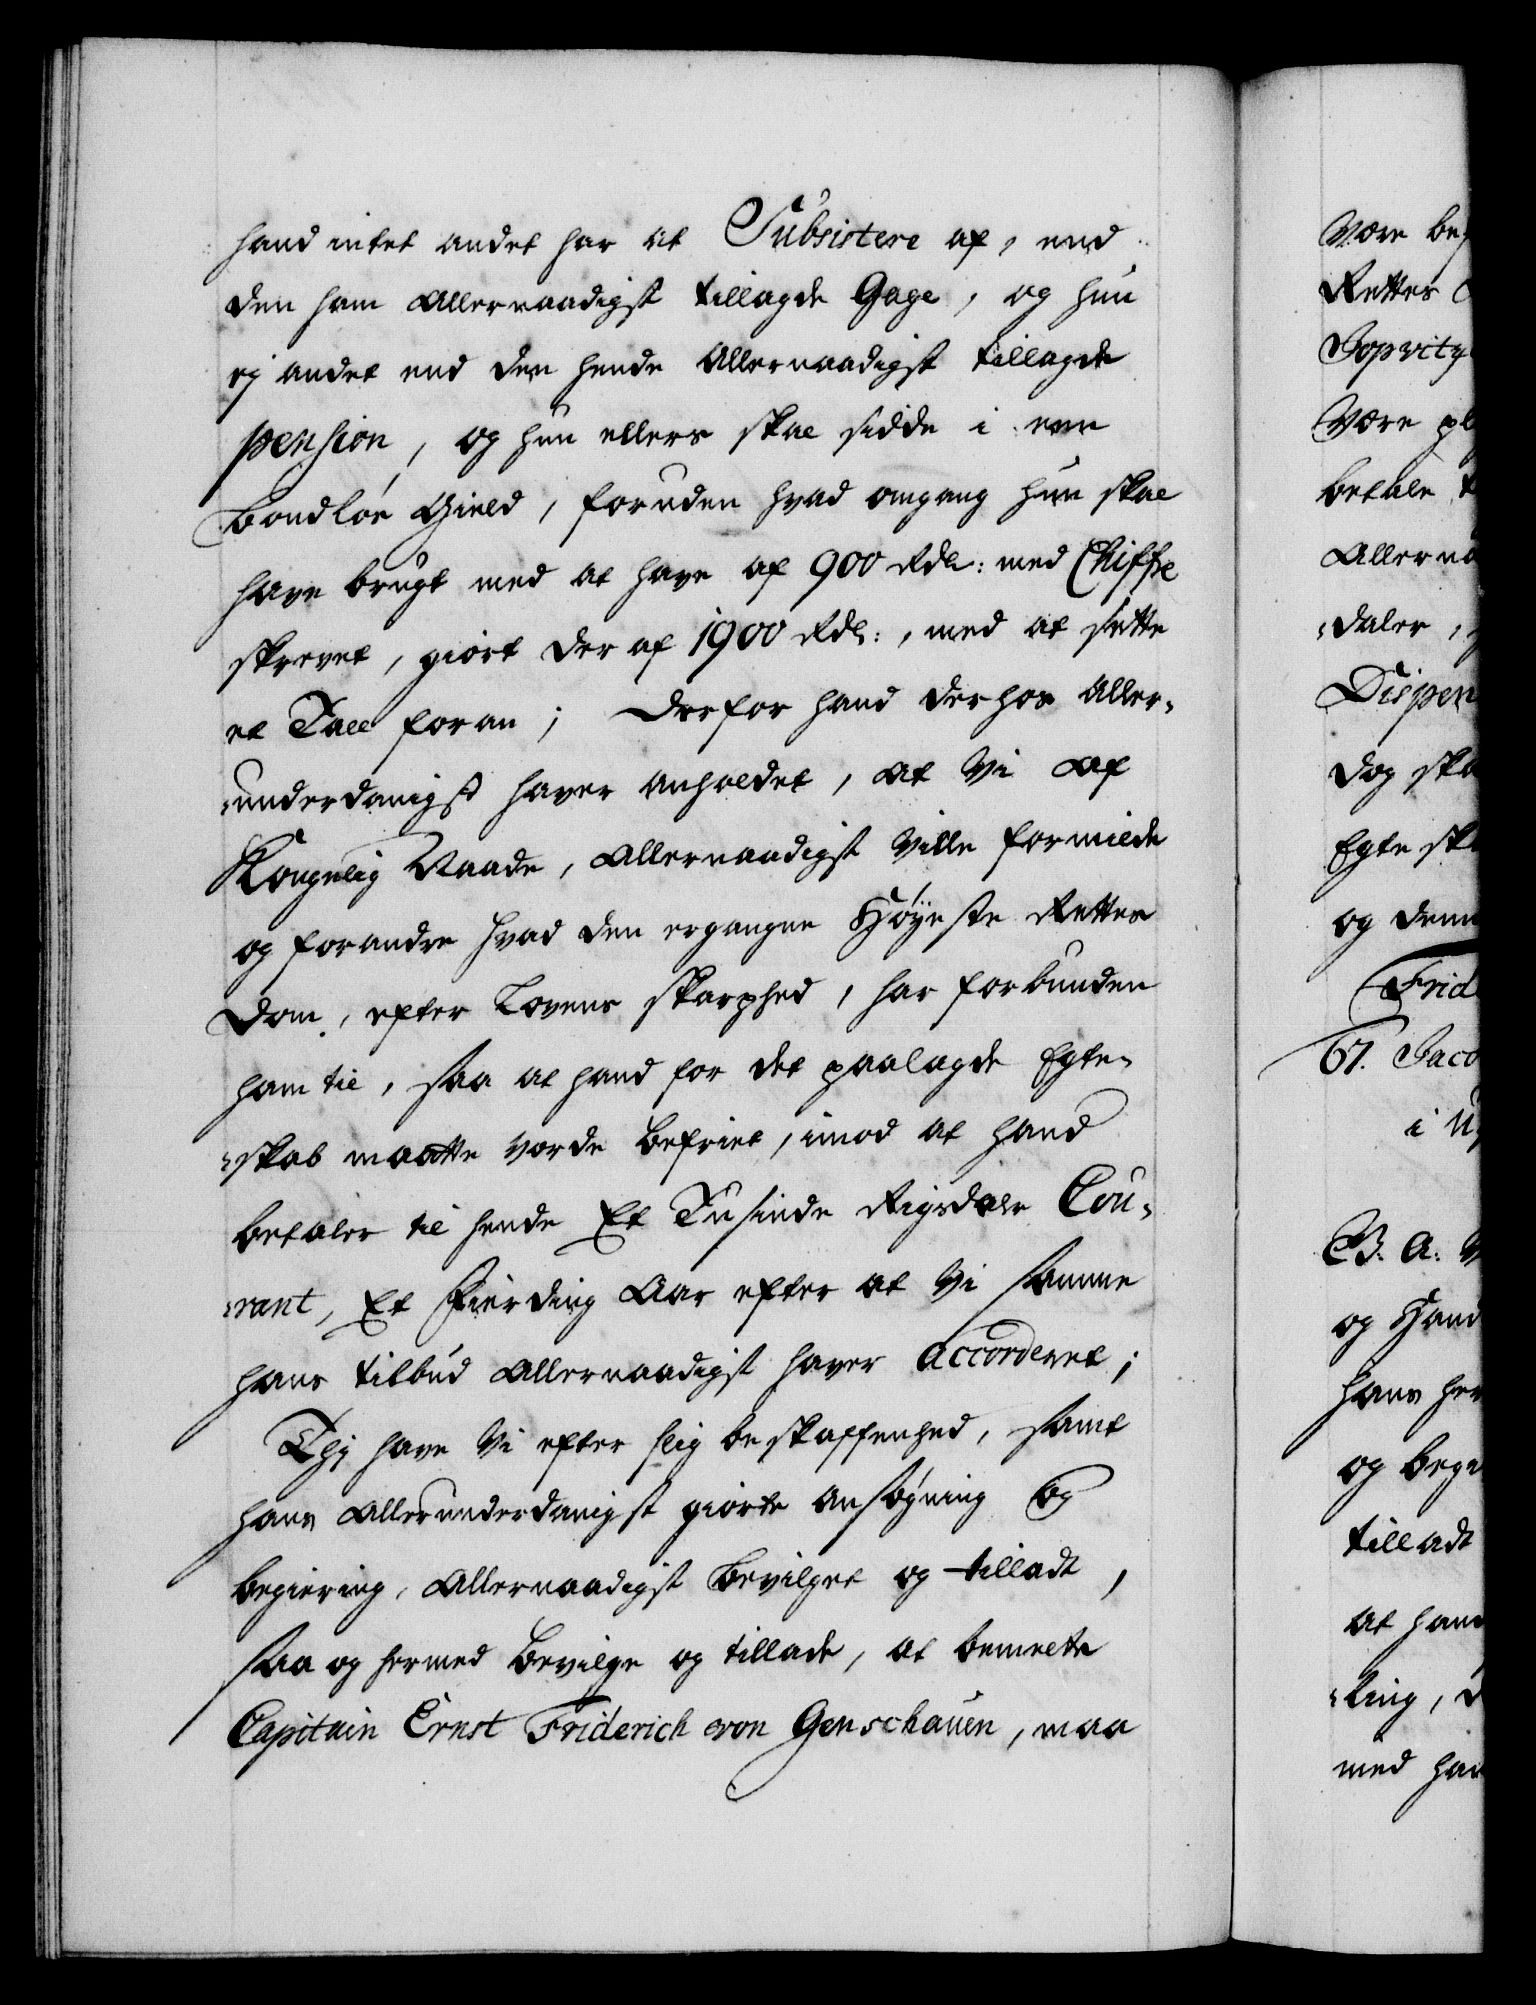 hand intet andet har at Subsistere af, end
den ham Allernaadigst tillagde Gage, og hun
ej andet end den hende Allernaadigst tillagde
pension, og hun ellers skal sidde i een
bondløs Gield, foruden hvad omgang hun skal
have brugt med at have af 900 Rdlr: med Chiffre
skrevet, giort der af 1900 Rdlr:, med at sætte
et Tall foran; Derfor hand derhos Aller-
underdanigst haver anholdet, at Vi af
Kongelig Naade, Allernaadigst Ville formilde
og forandre hvad den ergangne Høyeste Rettes
Dom, efter Lovens skarphed, har forbunden
ham til, saa at hand for det paalagde Egte-
skab maatte vorde befriet, imod at hand
betaler til hende Et Tusinde Rigsdaler Cou-
rant, Et Fierding Aar efter at Vi samme
hans tilbud Allernaadigst haver accorderet;
Thj have Vi efter slig beskaffenhed, samt
hans Allerunderdanigst giorte ansøgning og
begiering, Allernaadigst bevilget og tilladt,
saa og hermed bevilge og tillade, at bemelte
Capitain Ernst Friderich von Genschauen, maa
Være be
Rettes
Være
betale
Allerna
daler,
Dispen
dog ska
Egte sk
og denn
Frid
67. Jaco
i
B. A. V
og Hand
hans her
og begi
tilladt
at hand
ling,
med han